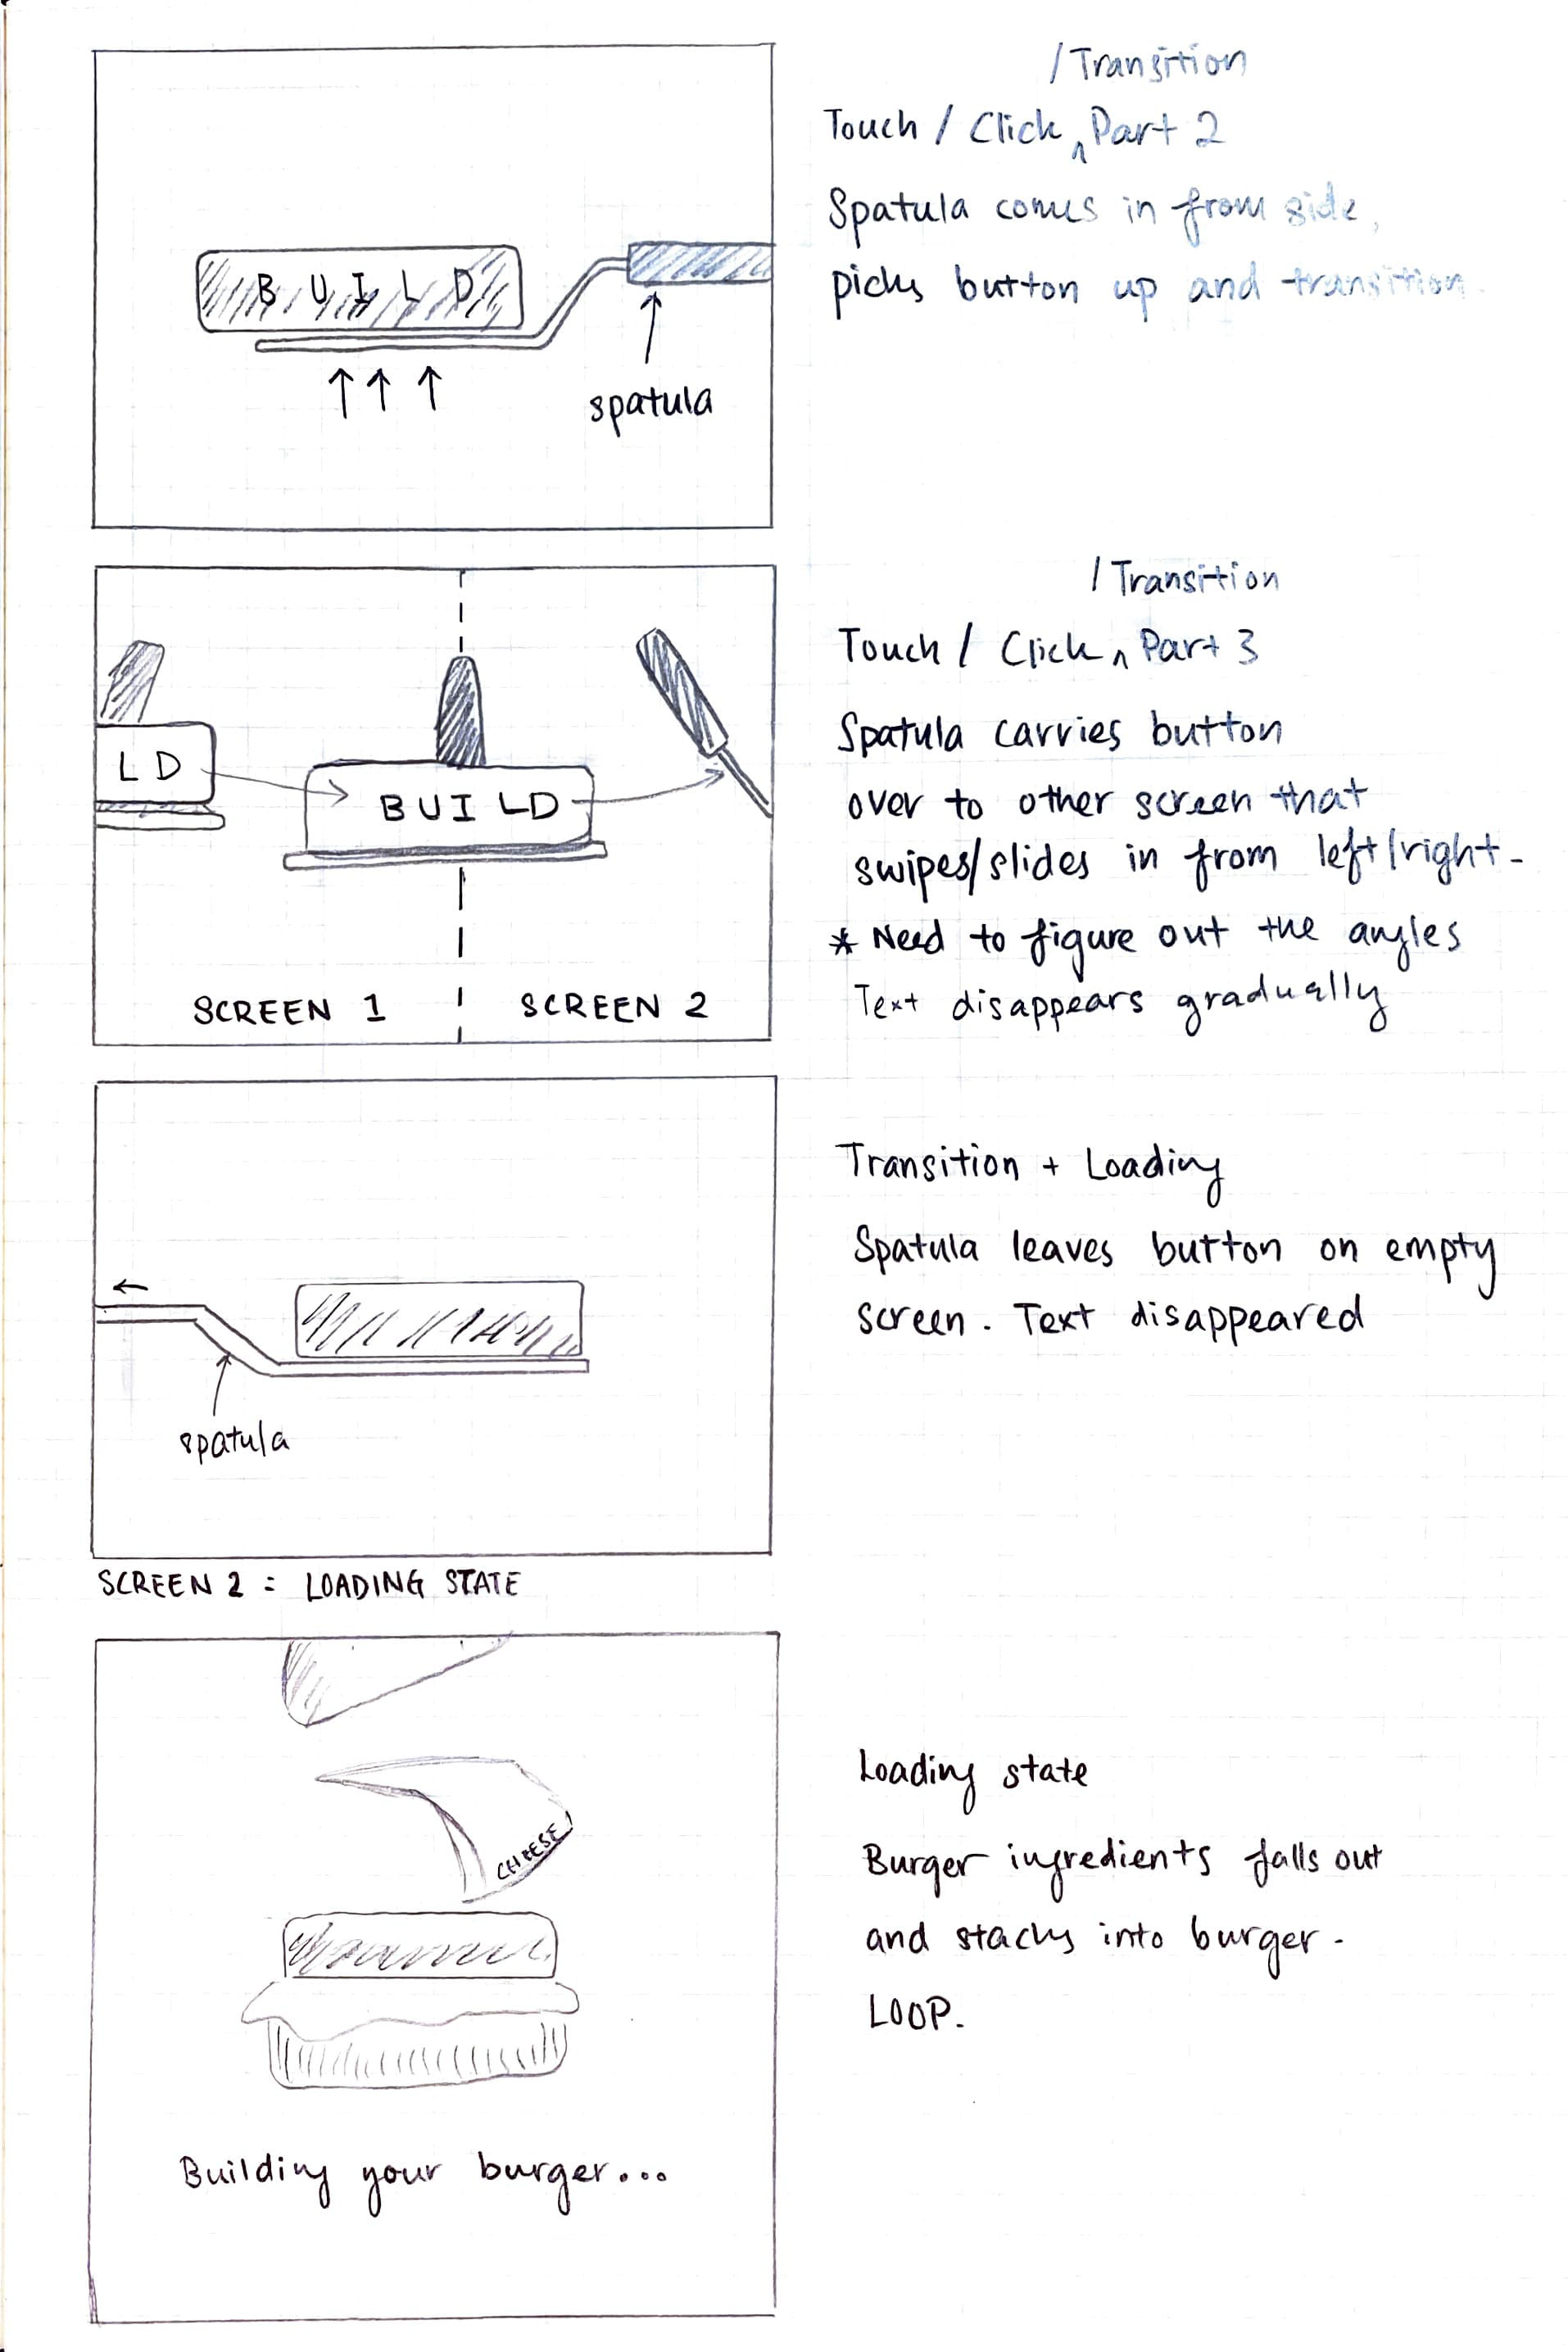 / Transition
Touch / Click ^ Part 2
Spatula comes in from side,
picks button up and transition.
BUILD
spatula
/ Transition
Touch / Click ^ Part 3
Spatula carries button
over to other screen that
swipes/slides in from left/right.
* Need to figure out the angles
Text disappears gradually
LD
BUILD
SCREEN 1
SCREEN 2
Transition + Loading
Spatula leaves button on empty
screen. Text disappeared
spatula
SCREEN 2 = LOADING STATE
Loading state
Burger ingredients falls out
and stacks into burger.
LOOP.
CHEESE
Building your burger...